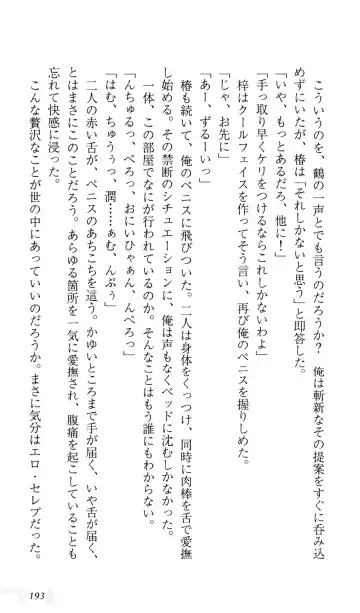 こういうのを、鶴の一声とでも言うのだろうか？　俺は斬新なその提案をすぐに呑み込
めずにいたが、椿は「それしかないと思う」と即答した。
「いや、もっとあるだろ、他に！」
「手っ取り早くケリをつけるならこれしかないわよ」
　梓はクールフェイスを作ってそう言い、再び俺のペニスを握りしめた。
「じゃ、お先に」
「あー、ずるーいっ」
　椿も続いて、俺のペニスに飛びついた。二人は身体をくっつけ、同時に肉棒を舌で愛撫
し始める。その禁断のシチュエーションに、俺は声もなくベッドに沈むしかなかった。
　一体、この部屋でなにが行われているのか。そんなことはもう誰にもわからない。
「んちゅるるっ、ぺろっ、おにいひゃぁん、んぺろっ」
「はむ、ちゅうぅっ、潤……ぁむ、んぷぅ」
　二人の赤い舌が、ペニスのあちこちを這う。かゆいところまで手が届く、いや舌が届く
とはまさにこのことだろう。あらゆる箇所を一気に愛撫され、腹痛を起こしていることも
忘れて快感に浸った。
　こんな贅沢なことが世の中にあっていいのだろうか。まさに気分はエロ・セレブだった。
193